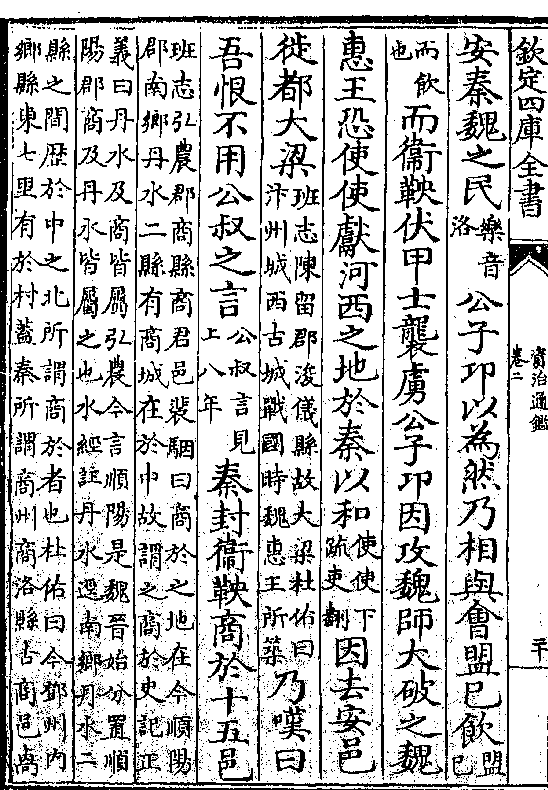 欽定四庫全書
資治通鑑
卷二
二十
安秦魏之民樂音洛公子卬以為然乃相與會盟已飲盟已
而飲也而衞鞅伏甲士襲虜公子卬因攻魏師大破之魏
惠王恐使使獻河西之地於秦以和使使下疏吏翻因去安邑
徙都大梁班志陳留郡浚儀縣故大梁杜佑曰汴州城西古城戰國時魏惠王所築乃嘆曰
吾恨不用公叔之言公叔言見上八年秦封衞鞅商於十五邑
班志弘農郡商縣商君邑裴駰曰商於之地在今順陽
郡南鄉丹水二縣有商城在於中故謂之商於史記正
義曰丹水及商皆屬弘農今言順陽是魏晉始分置順
陽郡商及丹水皆屬之也水經註丹水逕南鄉丹水二
縣之間歴於中之北所謂商於者也杜佑曰今鄧州内
鄉縣東七里有於村蓋秦所謂商州商洛縣古商邑卨